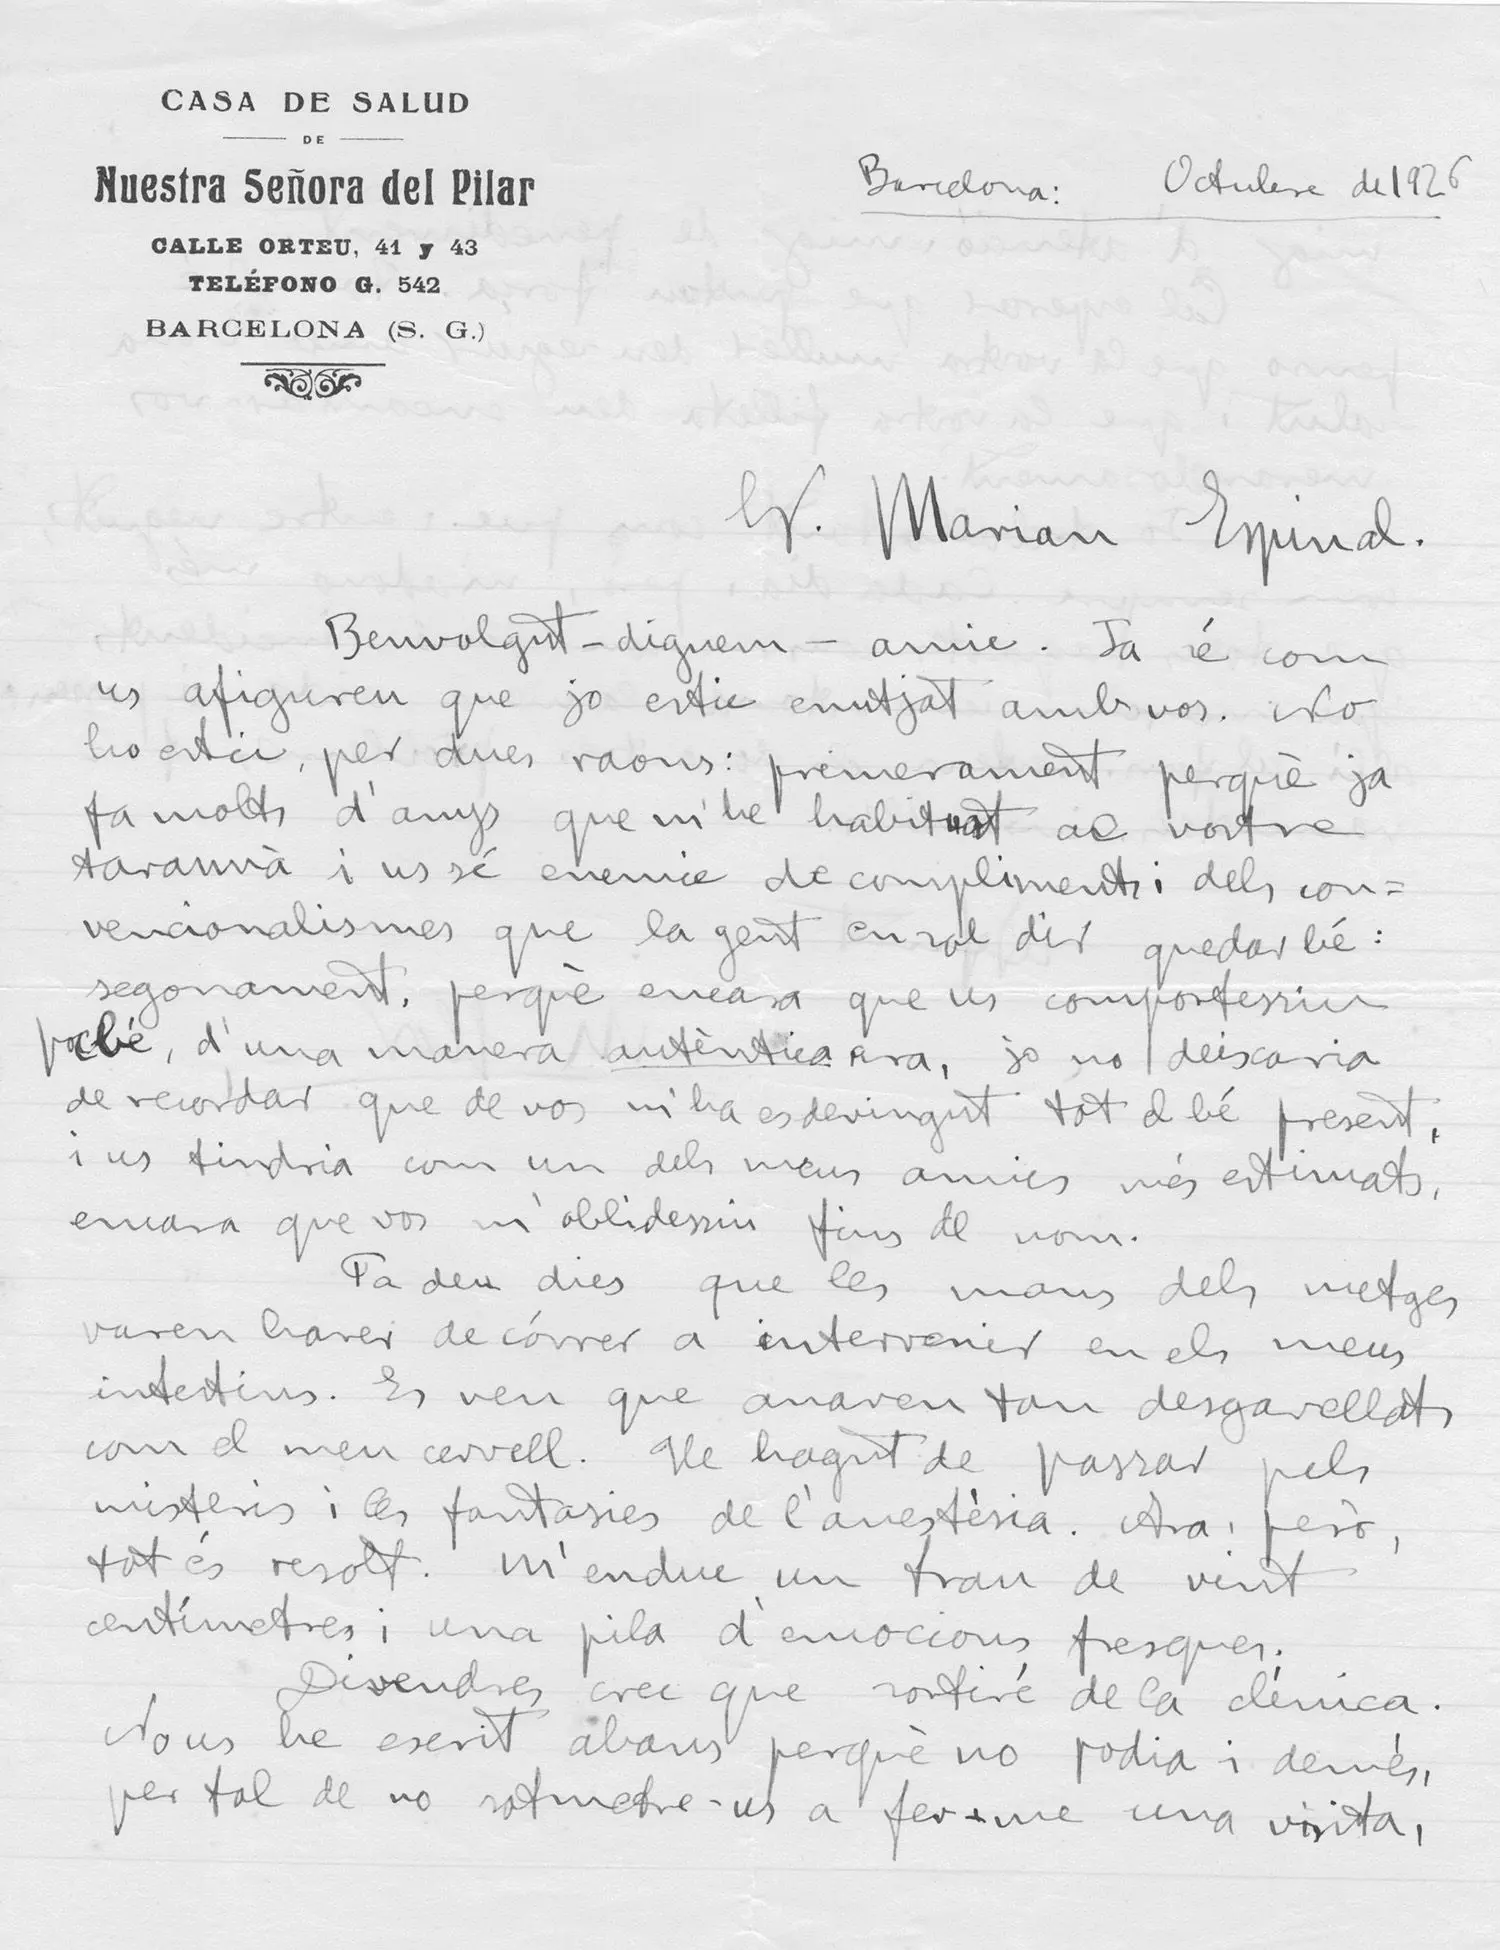 CASA DE SALUD
DE
Nuestra Señora del Pilar
CALLE ORTEU, 41 y 43
TELÉFONO G. 542
BARCELONA (S. G.)
Barcelona: Octubre de 1926
Marian Espinal.
Benvolgut - diguem - amic. Ja sé com
us afigureu que jo estic enutjat amb vos. No
ho estic, per dues raons: primerament perquè ja
fa molts d'anys que m'he habituat al vostre
tarannà i us sé enemic de compliments i dels con=
vencionalismes que la gent en sol dir quedar bé:
segonament, perquè encara que us comportessiu
poc bé, d'una manera autèntica ara, jo no deixaria
de recordar que de vos m'ha esdevingut tot el bé present,
i us tindria com un dels meus amics més estimats,
encara que vos m'oblidessiu fins el nom.
Fa deu dies que les mans dels metges
varen haver de córrer a intervenir en els meus
intestins. Es veu que anaven tan desgavellats
com el meu cervell. He hagut de passar pels
misteris i les fantasies de l'anestèsia. Ara, però,
tot és resolt. M'enduc un trau de vint
centímetres i una pila d'emocions fresques.
Divendres crec que sortiré de la clínica.
No us he escrit abans perquè no podia i demés,
per tal de no sotmetre-us a fer-me una visita,